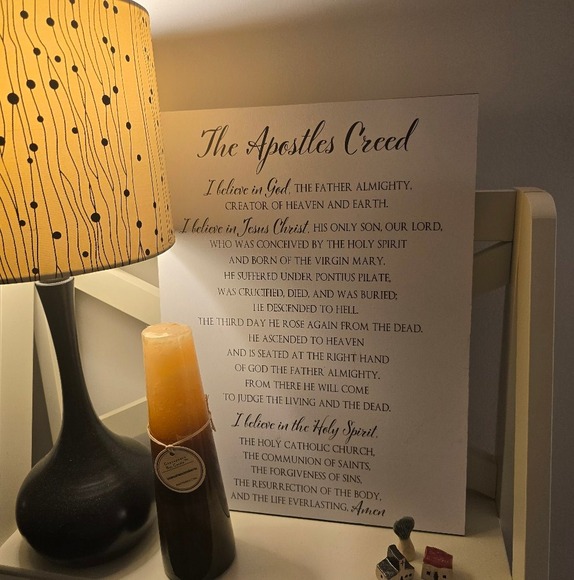 The Apostles Creed
I believe in God, THE FATHER ALMIGHTY,
CREATOR OF HEAVEN AND EARTH.
I believe in Jesus Christ, HIS ONLY SON, OUR LORD,
WHO WAS CONCEIVED BY THE HOLY SPIRIT
AND BORN OF THE VIRGIN MARY.
HE SUFFERED UNDER PONTIUS PILATE,
WAS CRUCIFIED, DIED, AND WAS BURIED;
HE DESCENDED TO HELL.
THE THIRD DAY HE ROSE AGAIN FROM THE DEAD.
HE ASCENDED TO HEAVEN
AND IS SEATED AT THE RIGHT HAND
OF GOD THE FATHER ALMIGHTY.
FROM THERE HE WILL COME
TO JUDGE THE LIVING AND THE DEAD.
I believe in the Holy Spirit,
THE HOLY CATHOLIC CHURCH,
THE COMMUNION OF SAINTS,
THE FORGIVENESS OF SINS,
THE RESURRECTION OF THE BODY,
AND THE LIFE EVERLASTING, Amen